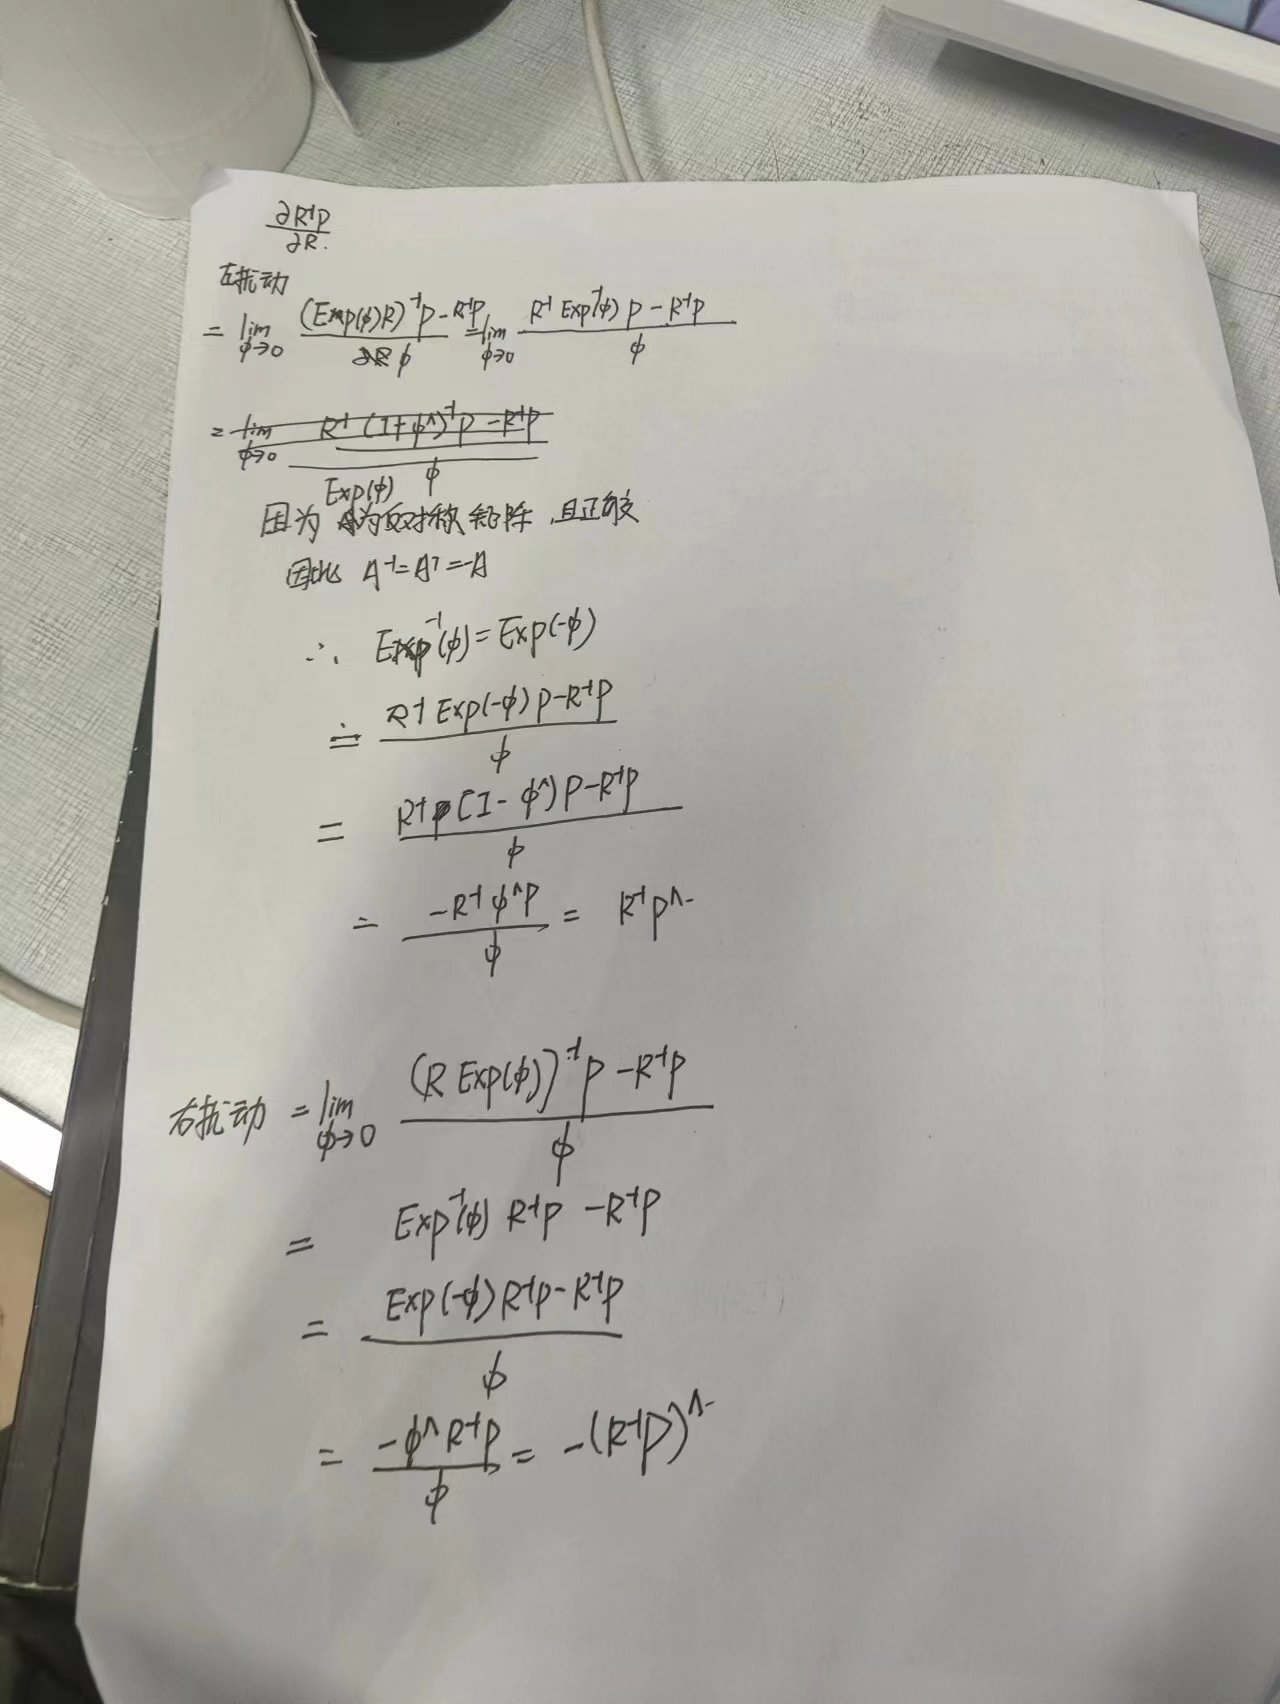 ∂R⁻¹p / ∂R.
左扰动
= lim φ→0 ((Exp(φ)R)⁻¹p - R⁻¹p) / φ = lim φ→0 (R⁻¹ Exp⁻¹(φ) p - R⁻¹p) / φ
= lim φ→0 (R⁻¹ (I+φ^)⁻¹p - R⁻¹p) / φ
Exp(φ)
因为 为反对称矩阵,且正交
因此 A⁻¹=Aᵀ=-A
∴ Exp⁻¹(φ)=Exp(-φ)
= (R⁻¹ Exp(-φ) p - R⁻¹p) / φ
= (R⁻¹ (I - φ^) p - R⁻¹p) / φ
= (-R⁻¹ φ^p) / φ = R⁻¹p^.
右扰动 = lim φ→0 ((R Exp(φ))⁻¹p - R⁻¹p) / φ
= Exp⁻¹(φ) R⁻¹p - R⁻¹p
= (Exp(-φ)R⁻¹p - R⁻¹p) / φ
= (-φ^R⁻¹p) / φ = -(R⁻¹p)^.